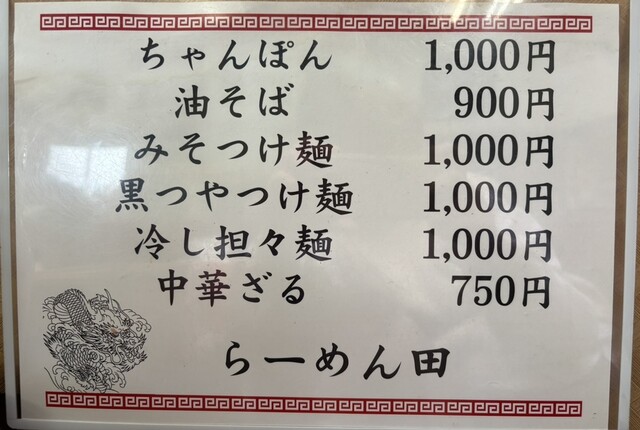 ちゃんぽん 1,000円
油そば 900円
みそつけ麺 1,000円
黒つやつけ麺 1,000円
冷し担々麺 1,000円
中華ざる 750円
らーめん田